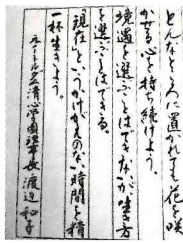 どんなところに置かれても花を咲
かせる心を持ち続けよう。
境遇を選ぶことはできないが生き方
を選ぶことはできる。
「現在」というかけがえのない時間を精
一杯生きよう。
元ノートルダム清心学園理事長 渡辺和子